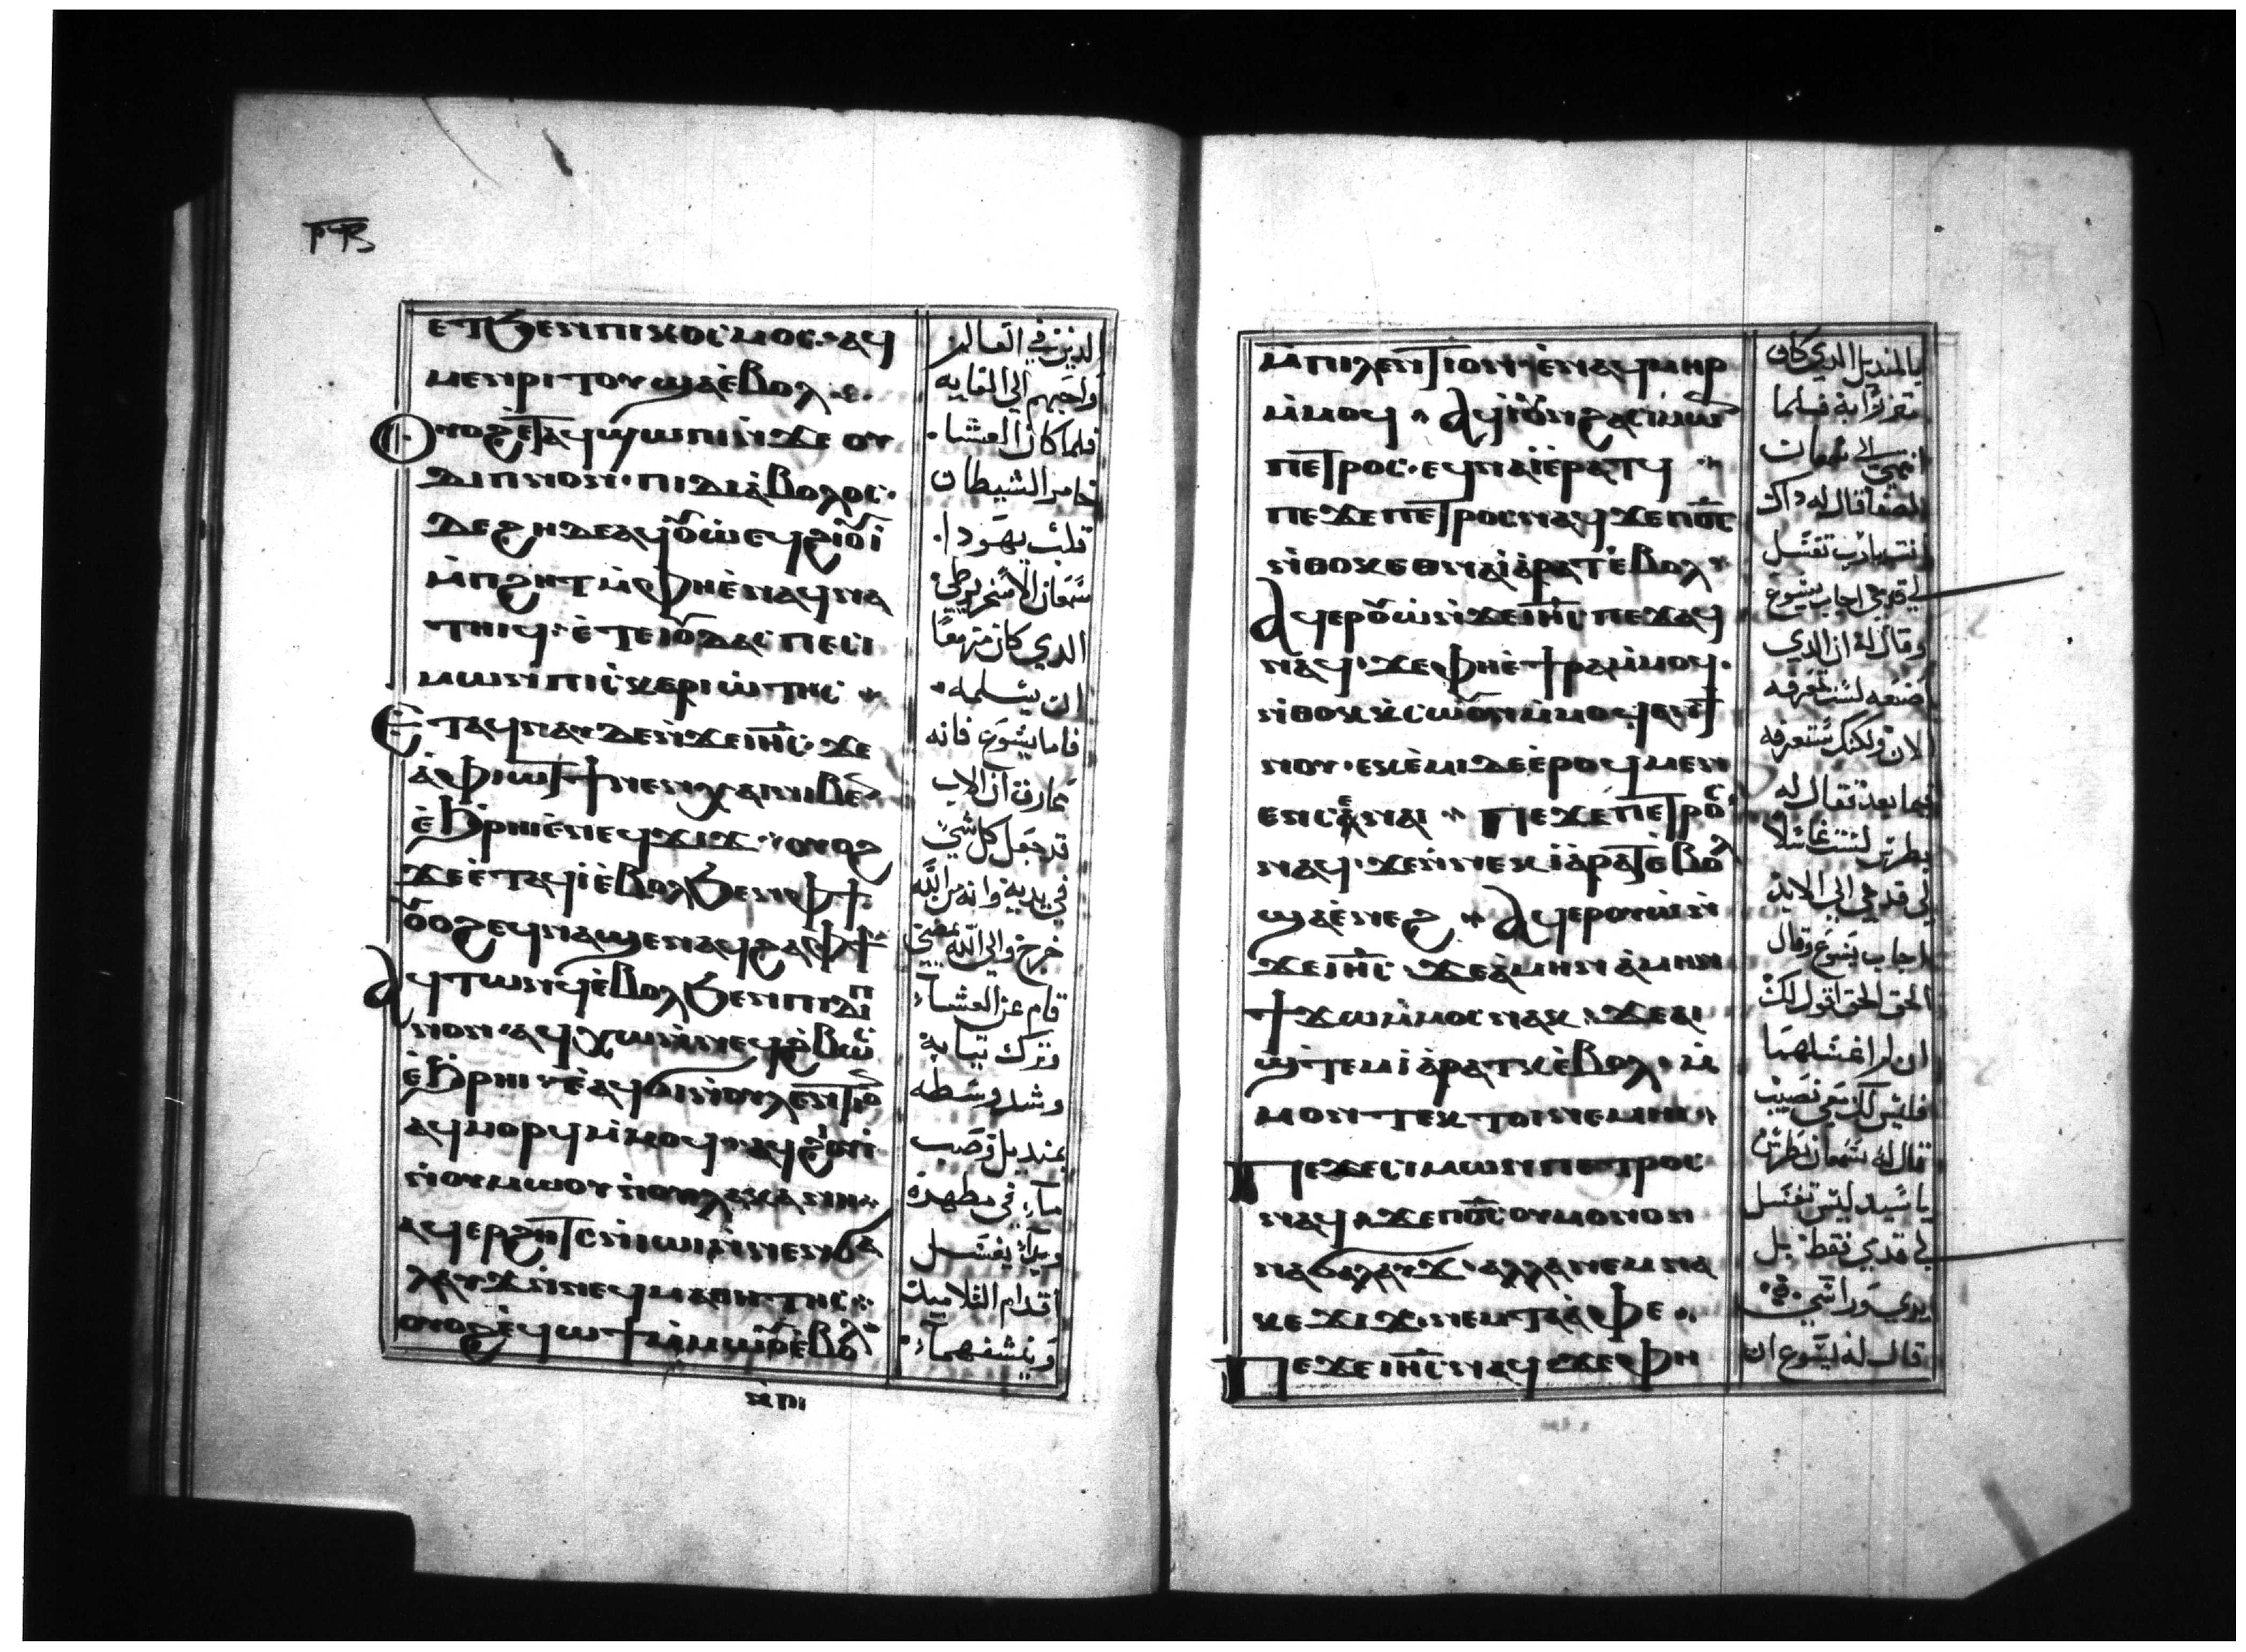 ⲉⲧϧⲉⲛⲡⲓⲕⲟⲥⲙⲟⲥ· ⲁϥ
ⲙⲉⲛⲣⲓⲧⲟⲩϣⲁⲉ̀ⲃⲟⲗ
ⲟⲩⲟϩⲉ̀ⲧⲁϥϣⲱⲡⲓⲛ̀ϫⲉ ⲟⲩ
ⲇⲓⲡⲛⲟⲛ· ⲡⲓⲇⲓⲁ̀ⲃⲟⲗⲟⲥ·
ⲙ̀ⲡϩⲏⲧⲙ̀ⲫⲏⲉ̀ⲛⲁϥⲛⲁ
ⲧⲏⲓϥ· ⲉ̀ⲧⲉⲓⲟⲩⲇⲁⲥ ⲡⲉⲥⲓ
ⲙⲱⲛⲡⲓⲥⲕⲉⲣⲓⲱ̀ⲧⲏⲥ
Ⲉⲧⲁϥⲛⲁⲩⲇⲉⲛ̀ϫⲉⲓⲏ̅ⲥ̅· ϫⲉ
ⲁ̀ⲫⲓⲱⲧϯⲛⲉⲛⲭⲁⲛⲓⲃⲉⲛ
ⲉ̀ϧⲣⲏⲓⲉ̀ⲛⲉϥϫⲓϫ· ⲟⲩⲟϩ
ϫⲉⲉ̀ⲧⲁϥⲓ̀ⲉ̀ⲃⲟⲗϧⲉⲛⲫϯ
ⲟⲩⲟϩⲉϥⲛⲁϣⲉⲛⲁϥϩⲁⲫϯ
Ⲁϥⲧⲱⲛϥⲉ̀ⲃⲟⲗϧⲉⲛⲡⲓⲇⲓⲡ
ⲛⲟⲛ· ⲁϥⲭⲱⲛ̀ⲛⲉϥϩ̀ⲃⲱⲥ
ⲉ̀ϧⲣⲏⲓ· ⲉ̀ⲁϥϭⲓⲛ̀ⲟⲩⲗⲉⲛⲧⲓⲟⲛ
ⲁϥⲙⲟⲣϥⲙ̀ⲙⲟϥ· ⲁϥϩⲓⲟⲩⲓ
ⲛ̀ⲟⲩⲙⲱⲟⲩ ⲛ̀ⲟⲩⲗⲁⲕⲁⲛⲏ
ⲁϥⲉⲣϩⲏⲧⲥⲛ̀ⲓⲱⲓⲛ̀ⲛⲉⲛϭⲁ
ⲗⲁⲩϫⲛ̀ⲛⲉϥⲙⲁⲑⲏⲧⲏⲥ
ⲟⲩⲟϩⲉ̀ϥⲱϯⲙ̀ⲙⲱⲟⲩⲉ̀ⲃⲟⲗ
الذين في العالم
واحبهم الي الغايه
فلما كان العشاء
خامر الشيطان
قلب يهودا
سمعان الاسخريوطي
الدي كان مزمعًا
ان يسلمه
فاما يشوع فانه
عارف ان الاب
قد جعل كل شي
في يديه وانه من الله
خرج والي الله يمضي
قام عن العشاء
وترك تيابه
وشد وسطه
بمنديل وصب
ماء في مطهره
وبدا يغسل
اقدام التلاميد
وينشفهما
ⲙ̀ⲡⲓⲗⲉⲛⲧⲓⲟⲛ· ⲉ̀ⲛⲁϥⲙⲏⲣ
ⲙ̀ⲙⲟϥ Ⲁϥⲓ̀ⲟⲩⲛϩⲁⲥⲓⲙⲱⲛ
ⲡⲉⲧⲣⲟⲥ· ⲉϥⲛⲁⲓⲁ̀ⲣⲁⲧϥ
ⲡⲉϫⲉⲡⲉⲧⲣⲟⲥⲛⲁϥϫⲉⲡⲟ̅ⲥ̅
ⲛ̀ⲑⲟⲕⲉⲑⲛⲁⲓⲁ̀ⲣⲁⲧⲉ̀ⲃⲟⲗ
Ⲁϥⲉⲣⲟⲩⲱ̀ⲛ̀ϫⲉⲓⲏ̅ⲥ̅ ⲡⲉϫⲁϥ
ⲛⲁϥ· ϫⲉⲫⲏⲉ̀ϯⲣⲁⲙ̀ⲙⲟϥ·
ⲛ̀ⲑⲟⲕⲕ̀ⲥⲱⲟⲩⲛⲙ̀ⲙⲟϥⲁⲛϯ
ⲛⲟⲩ· ⲉⲕⲉ̀ⲉⲙⲓⲇⲉⲉ̀ⲣⲟϥⲙⲉⲛ
ⲉⲛⲥⲁⲛⲁⲓ Ⲡⲉϫⲉⲡⲉⲧⲣⲟⲥ
ⲛⲁϥ· ϫⲉⲛ̀ⲛⲉⲕⲓⲁ̀ⲣⲁⲧⲉ̀ⲃⲟⲗ
ϣⲁⲉ̀ⲛⲉϩ Ⲁϥⲉⲣⲟⲩⲱ̀ⲛ̀
ϫⲉⲓⲏ̅ⲥ̅ ϫⲉⲁ̀ⲙⲏⲛⲁ̀ⲙⲏⲛ
ϯϫⲱⲙ̀ⲙⲟⲥⲛⲁⲕ· ϫⲉⲁⲓ
ϣ̀ⲧⲉⲙⲓⲁ̀ⲣⲁⲧⲕⲉ̀ⲃⲟⲗ· ⲙ̀
ⲙⲟⲛⲧⲉⲕⲧⲟⲓⲛⲉⲙⲏⲓ
Ⲡⲉϫⲉⲥⲓⲙⲱⲛⲡⲉⲧⲣⲟⲥ
ⲛⲁϥϫⲉⲡⲟ̅ⲥ̅ⲟⲩⲙⲟⲛⲟⲛ
ⲛⲁϭⲁⲗⲁⲩϫ· ⲁⲗⲗⲁⲛⲉⲙⲛⲁ
ⲕⲉϫⲓϫⲛⲉⲙⲧⲁⲁ̀ⲫⲉ
Ⲡⲉϫⲉⲓⲏ̅ⲥ̅ⲛⲁϥϫⲉⲫⲏ
يالمنديل الدي كان
متزرًا به فلما
انتهي الي سمعان
الصفا قال له داك
انت يارب تغسل
لي قدمي اجاب يشوع
وقال له ان الدي
اصنعه لست تعرفه
الان ولكنك ستعرفه
فيما بعد فقال له
بطرس لست غاسلًا
لي قدمي الي الابد
اجاب يسوع وقال
الحق الحق اقول لك
ان لم اغسلهما
فليس لك معي نصيب
فقال له سمعان بطرس
يا سيد ليس تغسل
لي قدمي فقط بل
ويدي وراسي
قال له يسوع ان